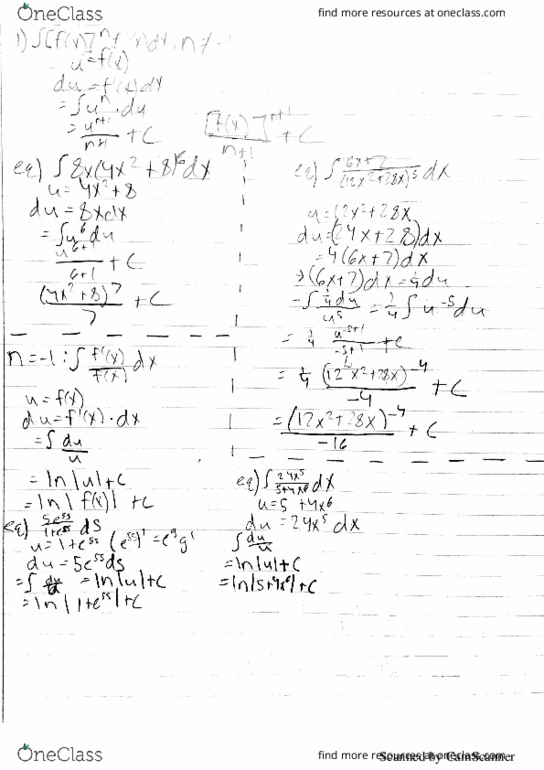 OneClass
find more resources at oneclass.com
1) ∫[f(x)]^n f'(x)dx, n ≠ -1
u = f(x)
du = f'(x)dx
= ∫u^n · du
= u^(n+1)/(n+1) + C
[f(x)]^(n+1)/(n+1) + C
eg) ∫8x(4x²+8)^6 dx
u = 4x²+8
du = 8xdx
= ∫u^6 du
u^(6+1)/(6+1) + C
(4x²+8)^7/7 + C
eg) ∫(6x+7)/(12x²+28x)^5 dx
u = 12x²+28x
du = (24x+28)dx
= 4(6x+7)dx
(6x+7)dx = ¼du
∫ ¼du/u^5 = ¼∫u^-5 du
= ¼ u^(-5+1)/(-5+1) + C
= ¼ (12x²+28x)^-4/-4 + C
= (12x²+28x)^-4/-16 + C
n = -1 : ∫f'(x)/f(x) dx
u = f(x)
du = f'(x) · dx
= ∫du/u
= ln|u| + C
= ln|f(x)| + C
eg) 5e^5s/1+e^5s ds
u = 1+e^5s (e^5s)' = e^g g'
du = 5e^5s ds
= ∫du/u = ln|u| + C
= ln|1+e^5s| + C
eg) ∫24x^5/5+4x^6 dx
u = 5+4x^6
du = 24x^5 dx
∫du/u
= ln|u| + C
= ln|5+4x^6| + C
OneClass
find more resources at oneclass.com
Scanned by CamScanner